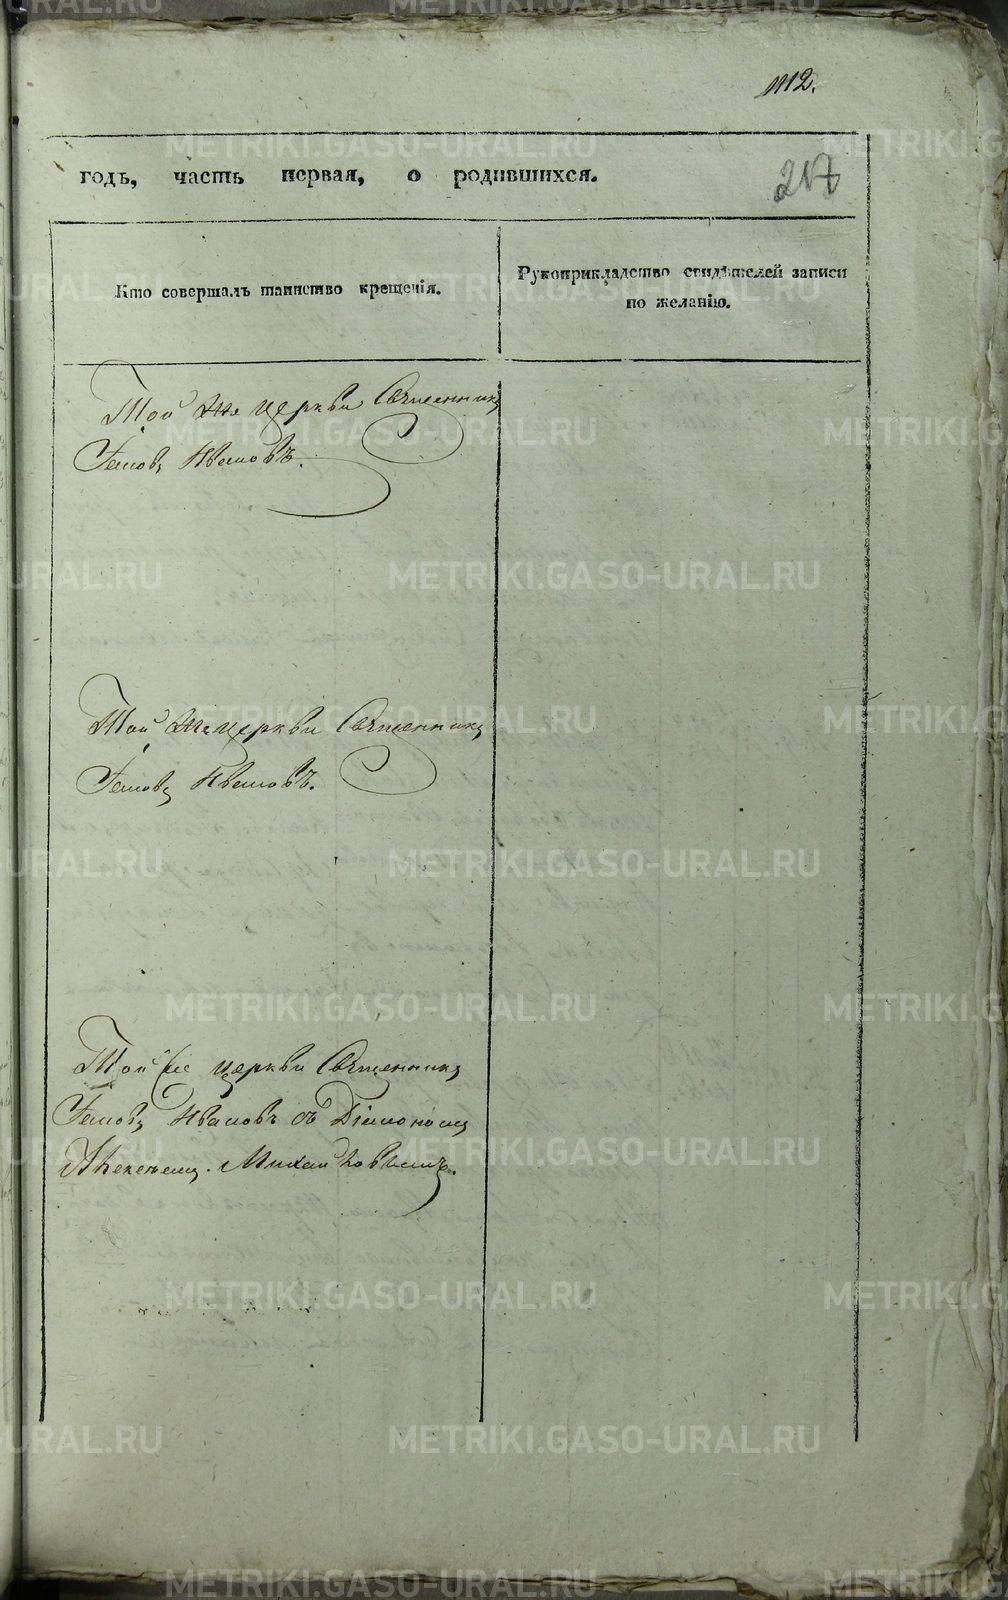 1112.
217
годъ, часть первая, о родившихся.
Кто совершалъ таинство крещенія.
Рукоприкладство свидѣтелей записи
по желанію.
Той же церкви Священникъ
Ивановъ.
Той же церкви Священникъ
Ивановъ.
Той же церкви Священникъ
Ивановъ съ Діакономъ
Алексѣемъ Михайловымъ.
METRIKI.GASO-URAL.RU